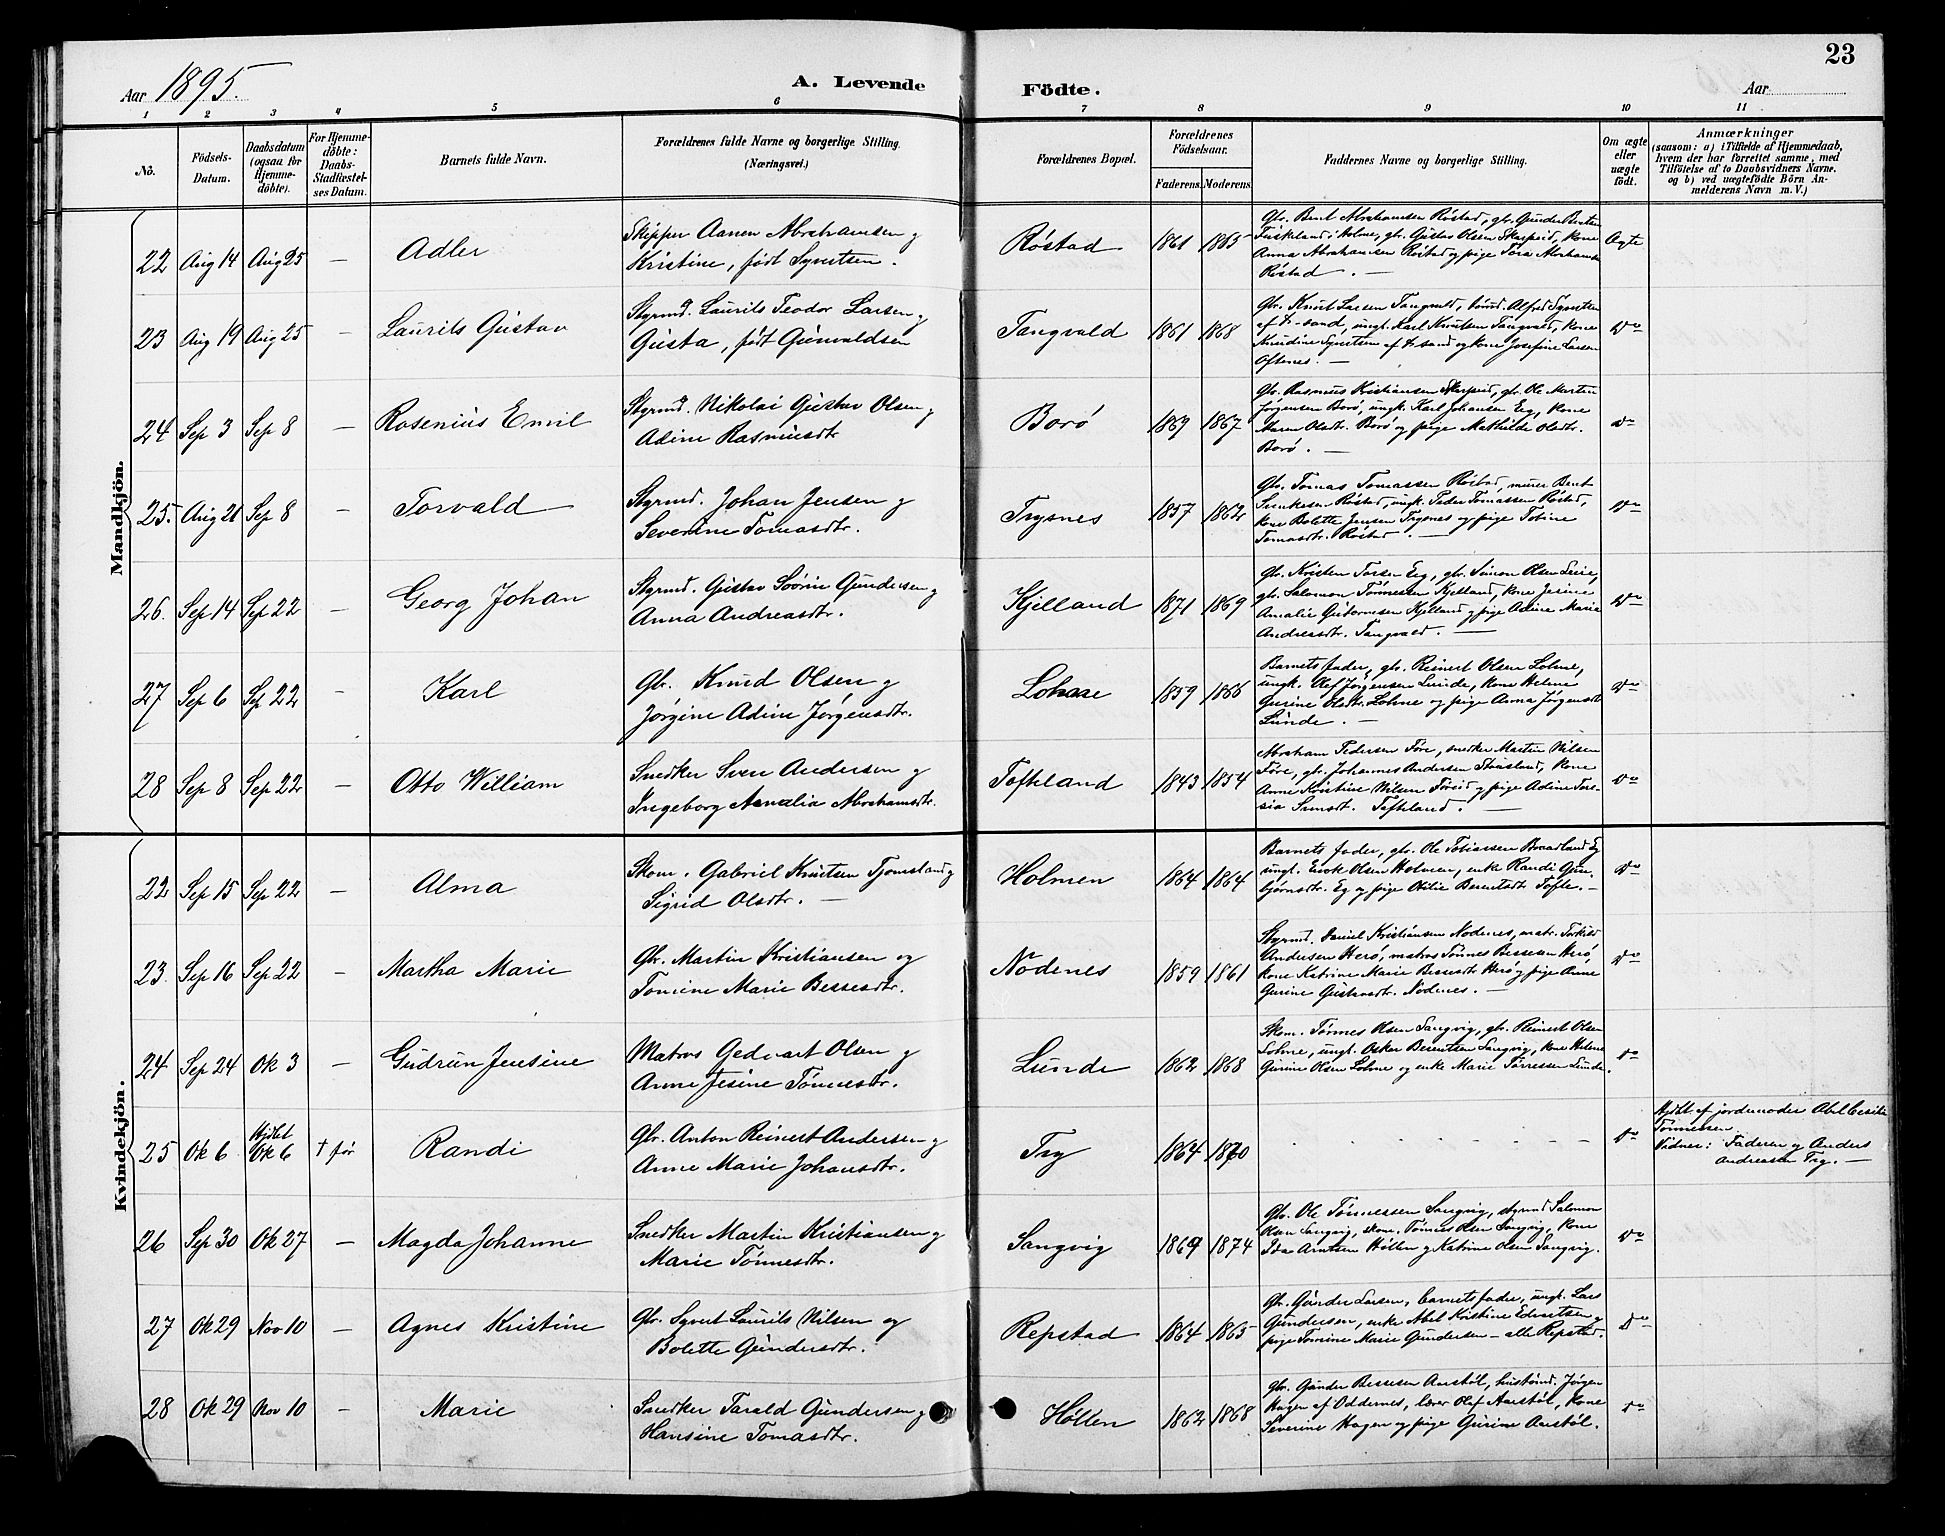 23
Aar 1895.
A. Levende
Födte.
Aar
1 2 3 4 5 6 7 8 9 10 11
No.
Födsels-
Datum.
Daabsdatum
(ogsaa for
Hjemme-
döbte).
For Hjemme-
döbte:
Daabs-
Stadfæstel-
ses Datum.
Barnets fulde Navn.
Forældrenes fulde Navne og borgerlige Stilling.
(Næringsvei.)
Forældrenes Bopæl.
Forældrenes
Födselsaar.
Faderens.
Moderens.
Faddernes Navne og borgerlige Stilling.
Om ægte
eller
uægte
födt.
Anmærkninger
(saasom: a) i Tilfælde af Hjemmedaab,
hvem der har forrettet samme, med
Tilföielse af to Daabsvidners Navne.
og b) ved uægtefödte Börn An-
melderens Navn m. V.)
Mandkjön.
22 Aug 14 Aug 25 — Adler
Skipper Aanen Abrahamsen og
Kristine, født Syvertsen.
Røstad 1861 1865
Gbr. Bent Abrahamsen Røstad, gbr. Gunder Bentsen
Fuskeland i Holme, gbr. Gustav Olsen Skarpeid, kone
Anna Abrahamsen Røstad og pige Tora Abrahams
Røstad. —
Ægte
23 Aug 19 Aug 25 — Laurits Gustav
Styrmd. Laurits Teodor Larsen og
Gusta, født Gunvaldsen
Tangvald 1861 1868
Gbr. Knut Larsen Tangvald, Alfred Syvertsen
af K-sand, ungk. Karl Knutsen Tangvald, kone
Knudine Syvertsen af K-sand og kone Josefine Larsen
Oftenes. —
Do
24 Sep 3 Sep 8 — Rosenius Emil
Styrmd. Nikolai Gustav Olsen og
Adine Rasmusdtr
Borø 1869 1867
Gbr. Rasmus Kristiansen Skarpeid, gbr. Ole Martin
Jørgensen Borø, ungk. Karl Johansen Eeg, kone
Maren Olsdtr. Borø og pige Mathilde Olsdtr.
Borø. —
Do
25. Aug 21 Sep 8 — Torvald
Styrmd. Johan Jensen og
Severine Tomasdtr.
Trysnes 1857 1862
Gbr. Tomas Tomassen Røstad, murer Bent
Røstad, ungk. Peder Tomassen Røstad,
kone Bolette Jensen Trysnes og pige Tobine
Tomasdtr. Røstad. —
Do
26. Sep 14 Sep 22 — Georg Johan
Styrmd. Gustav Sørin Gundersen og
Anna Andreasdtr.
Kjelland 1871 1869
Gbr. Kristen Torsen Eeg, gbr. Simon Olsen Leire,
gbr. Salomon Tønnessen Kjelland, kone Jesine
Amalie Guttormsen Kjelland og pige Adine Marie
Andreasdtr. Tangvald. —
Do
27 Sep 6 Sep 22 — Karl
Gbr. Knud Olsen og
Jørgine Adine Jørgensdtr.
Lohne 1859 1866
Barnets fader, gbr. Reinert Olsen Lohne,
ungk. Olef Jørgensen Lunde, kone Helene
Gurine Olsdtr. Lohne og pige Anna Jørgensdtr
Lunde. —
Do
28 Sep 8 Sep 22 — Otto William
Snedker Sven Andersen og
Ingeborg Amalia Abrahamsdtr.
Tofteland 1843 1854
Abraham Pedersen Føre, snedker Martin Nilsen
Føre, gbr. Johannes Andersen Stausland, kone
Anne Kristine Nilsen og pige Adine Tere-
sia Svensdt. Tofteland. —
Do
Kvindekjön.
22 Sep 15 Sep 22 — Alma
Skom. Gabriel Knutsen Tjomsland og
Sigrid Olsdtr. —
Holmen 1864 1864
Barnets fader, gbr. Ole Tobiassen Braadland Eg
ungk. Olsen Holmen, enke Randi Gun
bjørnsdtr. Eg og pige Otilie Berentsdt Tofte. —
Do
23. Sep 16 Sep 22 — Martha Marie
Gbr. Martin Kristiansen og
Tomine Marie Bessesdtr.
Nodenes 1859 1861
Styrmd. Daniel Kristiansen Nodenes, matr. Torkild
Andersen Herø, matros Tønnes Bessesen Herø,
kone Katrine Marie Bessesdt Herø og pige Anne
Gurine Gustavsdtr. Nodenes. —
Do
24 Sep 24 Ok 3 — Gudrun Jensine
Matros Gedvart Olsen og
Anne Jesine Tønnesdtr.
Lunde 1862 1868
Skom. Tønnes Olsen Sangvig, gbr. Reinert Olsen
Lohne, ungk. Osker Berentsen Sangvig, kone Helene
Gurine Olsen Lohne og enke Marie Tørressen Lunde.
Do
25 Ok 6 Hjdbt Ok 6 † før Randi
Gbr. Anton Reinert Andersen og
Anne Marie Johansdtr.
Try 1864 1870
Do
Hjdbt af jordemoder Abel Cecilie
Tønnessen
Vidner: Faderen og Anders
Andreasen Try. —
26 Sep 30 Ok 27 — Magda Johanne
Snedker Martin Kristiansen og
Marie Tönnesdtr.
Sangvig 1869 1874
Gbr. Ole Tønnessen Sangvig, styrmd Salomon
Olsen Sangvig, skom. Tønnes Olsen Sangvig, kone
Ida Arntsen Høllen og Katrine Olsen Sangvig.
Do
27 Ok 29 Nov 10 — Agnes Kristine
Gbr. Syvert Laurits Nilsen og
Bolette Gundersdtr.
Repstad 1864 1865
Gbr. Gunder Larsen, barnets fader, ungk. Lars
Gundersen, enke Abel Kristine Edvartsen og
pige Tomine Marie Gundersen — alle Repstad.
Do
28 Ok 29 Nov 10 — Marie
Snedker Tarald Gundersen og
Hansine Tomasdtr.
Høllen 1862 1868
Gbr. Gunder Bessesen Aarstøl, hustømd. Jørgen
Hagen af Oddernes, lærer Olaf Aarstøl, kone
Severine Hagen og pige Gurine Aarstøl.
Do